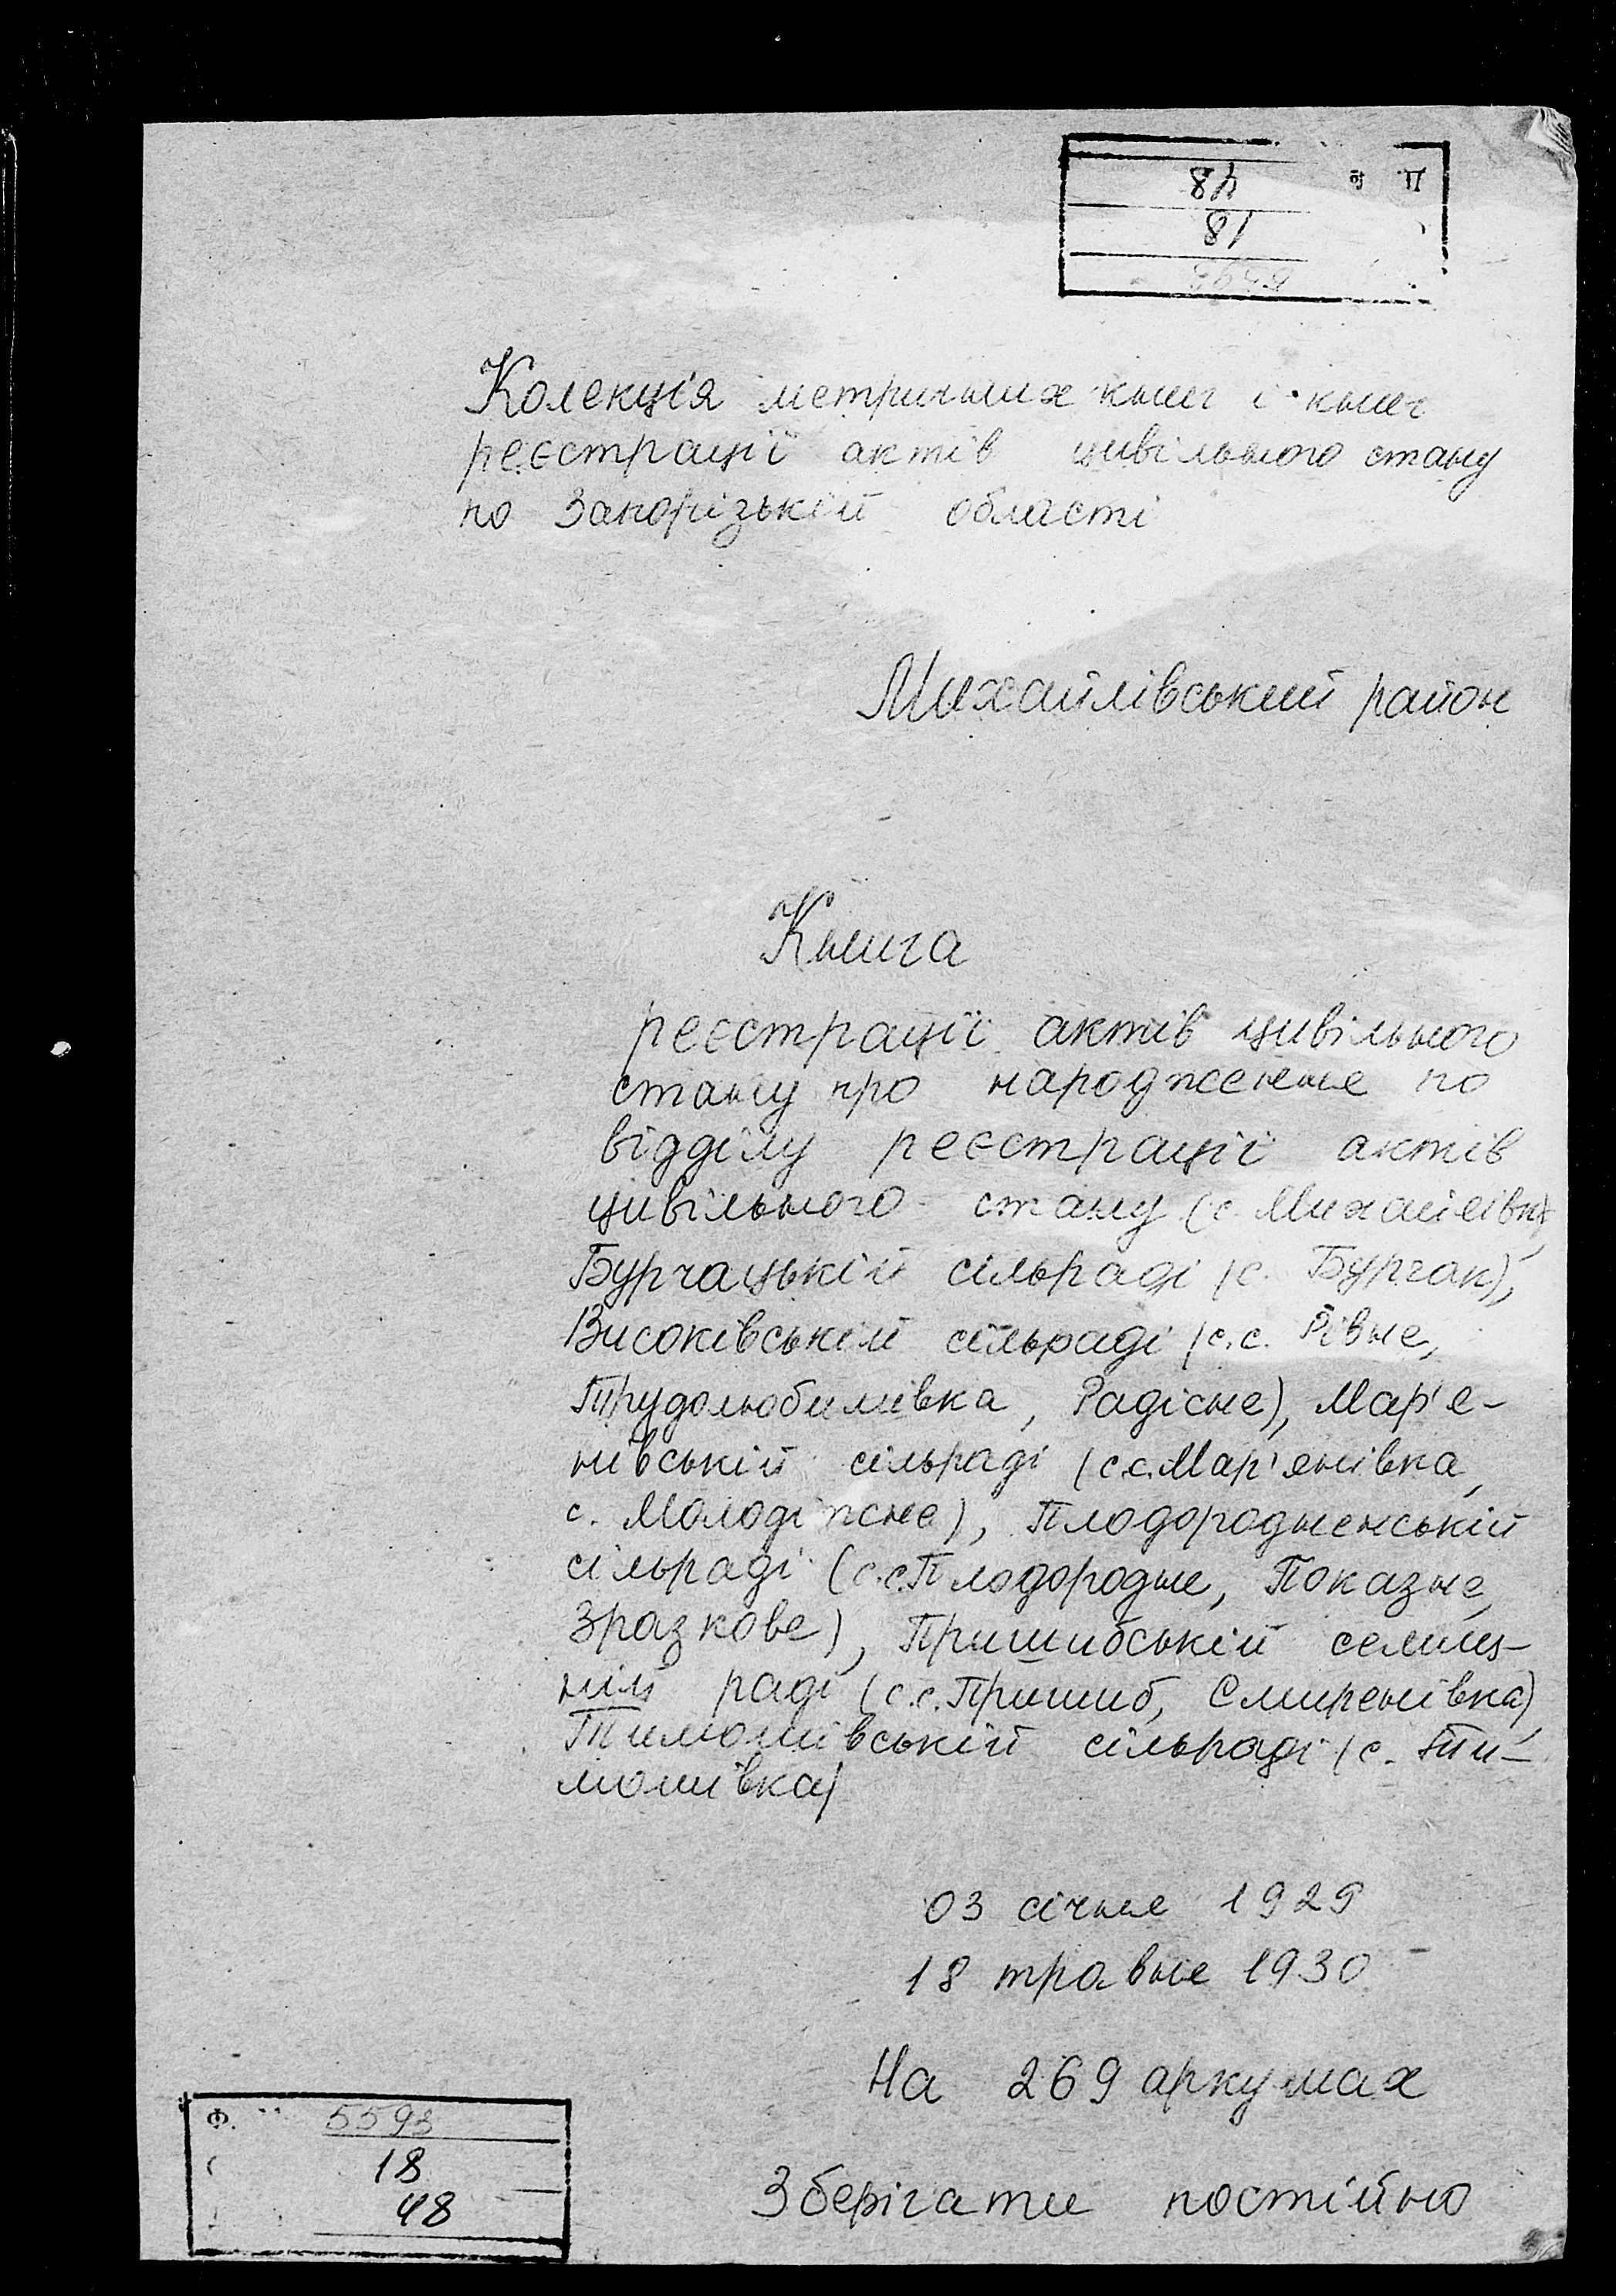 48
18
5593
Колекція метричних книг і книг
реєстрації актів цивільного стану
по Запорізькій області
Михайлівський район
Книга
реєстрації актів цивільного
стану про народження по
відділу реєстрації актів
цивільного стану (с. Михайлівка),
Бурчацькій сільраді (с. Бурчак),
Високівській сільраді (с.с. Рівне,
Трудолюбимівка, Радісне), Мар'є-
нівській сільраді (с.с. Мар'янівка,
с. Молодіжне), Плодородненській
сільраді (с.с. Плодородне, Показне,
Зразкове), Пришибській селищ-
ній раді (с.с. Пришиб, Смиренівка),
Тимошівській сільраді (с. Ти-
мошівка)
03 січня 1929
18 травня 1930
На 269 аркушах
Зберігати постійно
Ф. 5593
18
48